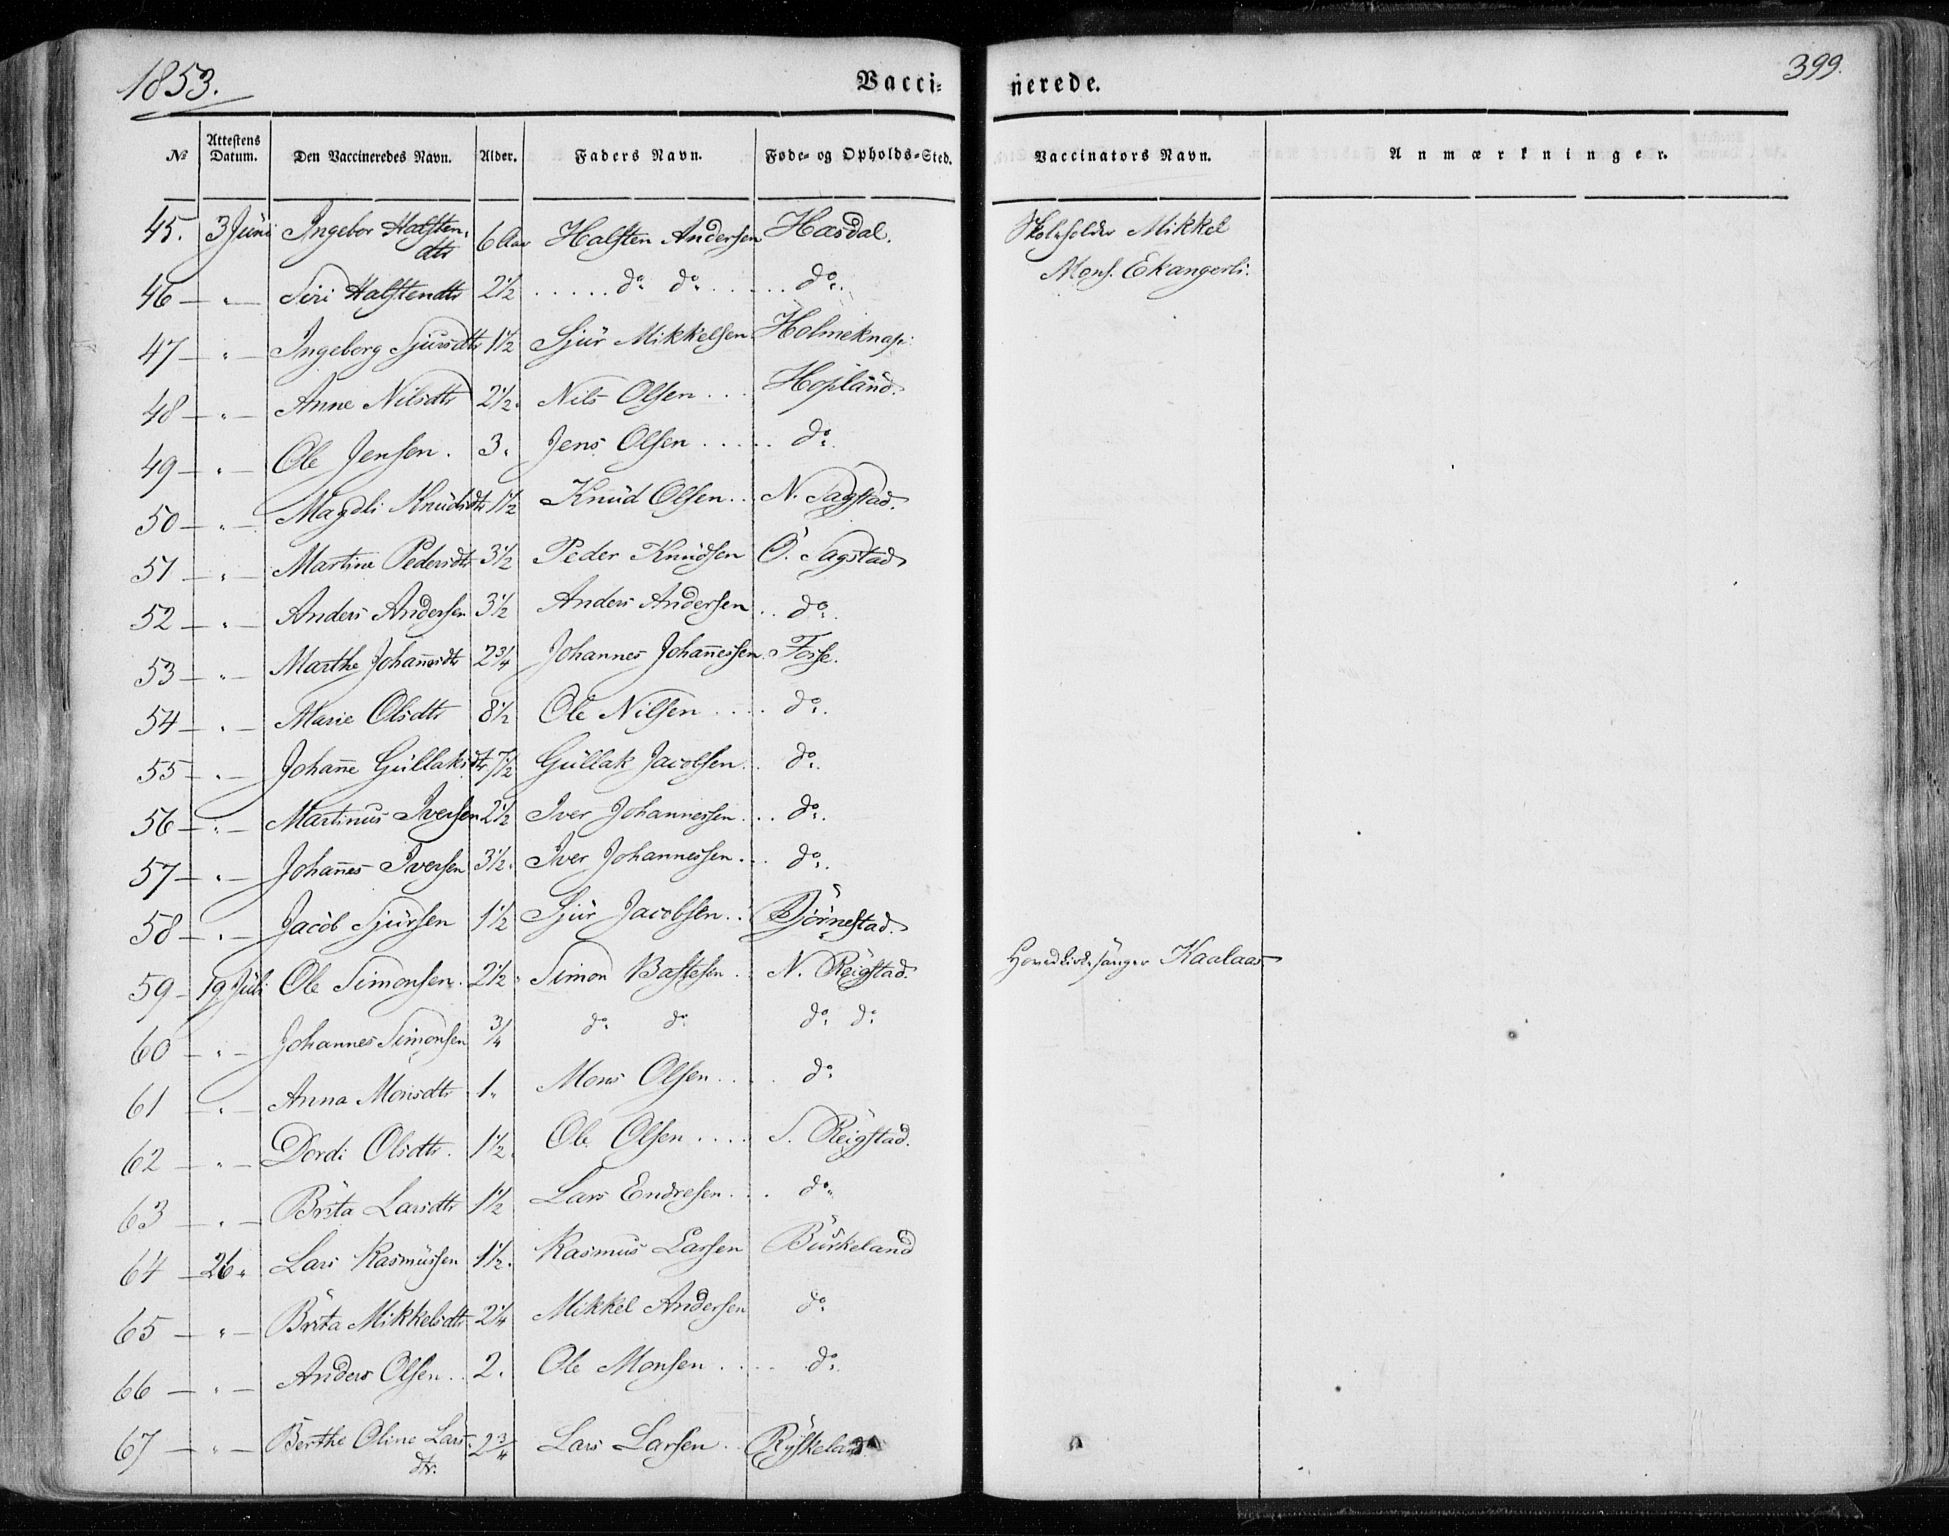 1853.
399.
Vacci-
nerede.
No Attestens Datum. Den Vaccineredes Navn. Alder. Faders Navn. Føde- og Opholds-Sted. Vaccinators Navn. Anmærkninger.
45. 3 Juni Ingebor Halsten- 6 Aar Halsten Andersen Hæsdal. Skoleholder Mikkel
dtr Mons. Ekangerli.
46 — „ — Siri Halstendtr 2 1/2 . . . . . do do . . . . . . do.
47 — „ — Ingeborg Sjursdtr 1 1/2 Sjur Mikkelsen Holmeknap.
48 — „ — Anne Nilsdtr 2 1/2. Nils Olsen . . . Hopland.
49 — „ — Ole Jensen. 3. Jens Olsen . . . . . do.
50 — „ — Magdli Knudsdtr 1 1/2 Knud Olsen . . N. Sagstad.
51 — „ — Martine Pedersdtr 3 1/2 Peder Knudsen Ö. Sagstad
52 — „ — Anders Andersen 3 1/2 Anders Andersen . . do.
53 — „ — Marthe Johan̄esdtr 2 3/4 Johannes Johan̄essen. Fosse.
54 — „ — Marie Olsdtr 8 1/2 Ole Nilsen . . . . do.
55 — „ — Johan̄e Gullaksdtr 7 1/2 Gullak Jacobsen . . do.
56 — „ — Martinus Iversen 2 1/2 Iver Johannessen . . . do.
57 — „ — Johan̄es Iversen 3 1/2. Iver Johannessen . . . do.
58 — „ — Jacob Sjursen 1 1/2 Sjur Jacobsen . . Björnestad.
59 — 19 Juli Ole Simonsen. 2 1/2 Simon Bastesen . . N. Reigstad. Hovedkirkesanger Kaalaas
60 — „ — Johannes Simonsen 3/4 do do do do
61 — „ — Anna Monsdtr 1. Mons Olsen . . . . do
62 — „ — Dordi Olsdtr. 1 1/2. Ole Olsen . . . . S. Reigstad.
63 — „ — Brita Larsdtr 1 1/2 Lars Endresen . . . do.
64 — 26 „ Lars Rasmussen 1 1/2. Rasmus Larsen Burkeland
65 — „ — Brita Mikkelsdtr 2 1/4 Mikkel Andersen do.
66 — „ — Anders Olsen . . 2. Ole Monsen . . . . do.
67 — „ — Berthe Oline Lars- 2 3/4 Lars Larsen . . Ryskeland
dtr.